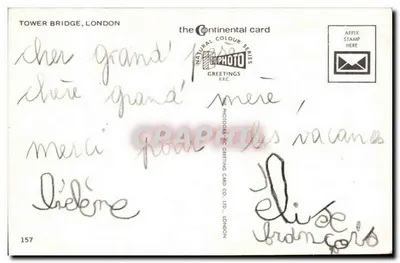 TOWER BRIDGE, LONDON
the Continental card
NATURAL COLOUR SERIES
PHOTO
GREETINGS
E.E.C.
AFFIX
STAMP
HERE
cher grand' père
chère grand' mère,
merci pour les vacances
PHOTOGRAPHIC GREETING CARD CO., LTD., LONDON
hélène
élise
françois
157